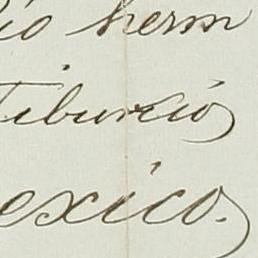 io herm
Tiburcio
exico.